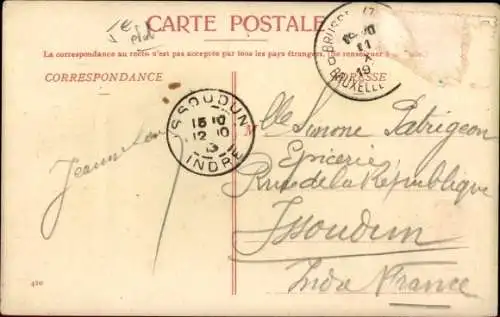 CARTE POSTALE
La correspondance au recto n'est pas acceptée par tous les pays étrangers, (Se renseigner à la poste).
CORRESPONDANCE
ADRESSE
BRUXELLES
ISSOUDUN
15 10
12 10
INDRE
Mlle Simone Patrigeon
Epicerie
Rue de la République
Issoudun
Indre France
420